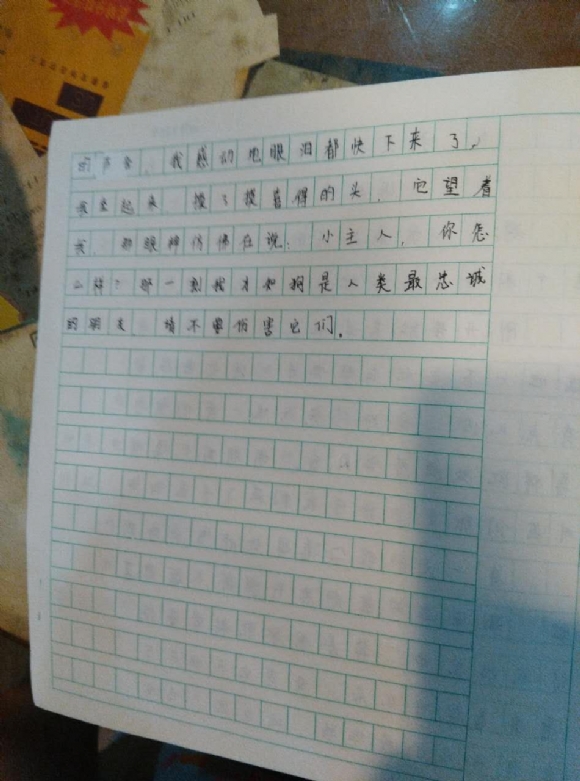 的声音，我感动地眼泪都快下来了。
我坐起来 摸了摸 的头，它望着
我，那眼神仿佛在说：小主人，你怎
么样？那一刻我才知狗是人类最忠诚
的朋友 请不要伤害它们。